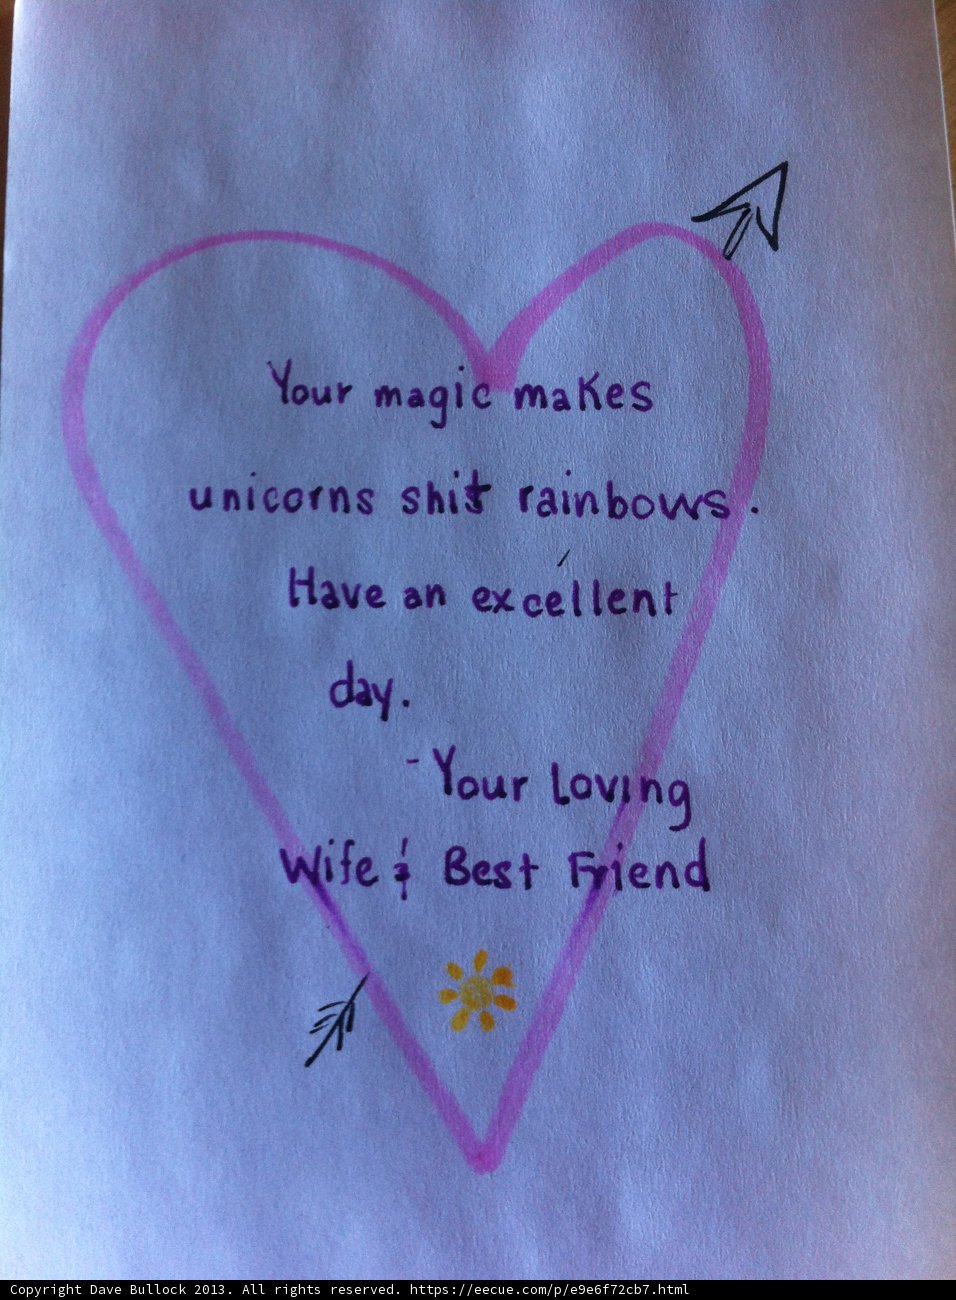 Your magic makes
unicorns shit rainbows.
Have an excellent
day.
- Your Loving
Wife & Best Friend
Copyright Dave Bullock 2013. All rights reserved. https://eecue.com/p/e9e6f72cb7.html